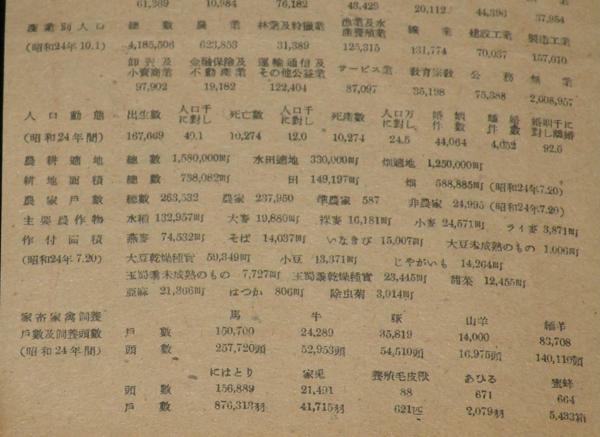 61,389 10,984 76,182 43,429 20,112 44,396 37,954
産業別人口 總數 農業 林業及狩獵業 漁業及水産養殖業 鑛業 建設工業 製造工業
(昭和24年10.1) 4,185,506 623,853 31,389 125,315 131,774 70,037 157,610
卸賣及小賣商業 金融保險及不動産業 運輸通信及その他公益業 サービス業 敎育宗敎 公務 無業
97,902 19,182 122,404 87,097 35,198 75,388 2,608,957
人口動態 出生數 人口千に對し 死亡數 人口千に對し 死産數 人口万に對し 婚姻件數 離婚件數 婚姻千に對し離婚
(昭和24年間) 167,669 40.1 10,274 12.0 10,274 24.5 44,064 4,052 92.0
農耕適地 總數 1,580,000町 水田適地 330,000町 畑適地 1,250,000町
耕地面積 總數 738,082町 田 149,197町 畑 588,885町 (昭和24年7.20)
農家戸數 總數 263,532 農家 237,950 準農家 587 非農家 24,995 (昭和24年7.20)
主要農作物 水稻 132,957町 大麥 19,880町 裸麥 16,181町 小麥 24,571町 ライ麥 3,871町
作付面積 燕麥 74,532町 そば 14,037町 いなきび 15,007町 大豆未成熟のもの 1,006町
(昭和24年7.20) 大豆乾燥種實 59,349町 小豆 13,371町 じやがいも 14,264町
玉蜀黍未成熟のもの 7,727町 玉蜀黍乾燥種實 23,445町 蔬菜 12,455町
亞麻 21,366町 はつか 806町 除虫菊 3,914町
家畜家禽飼養 馬 牛 豚 山羊 緬羊
戸數及飼養頭數 戸數 150,700 24,289 35,819 14,000 83,708
(昭和24年間) 頭數 257,720頭 52,953頭 54,510頭 16,975頭 140,110頭
にはとり 家兎 養殖毛皮獸 あひる 蜜蜂
頭數 156,889 21,491 88 671 664
戸數 876,313羽 41,715羽 621匹 2,079羽 5,433箱